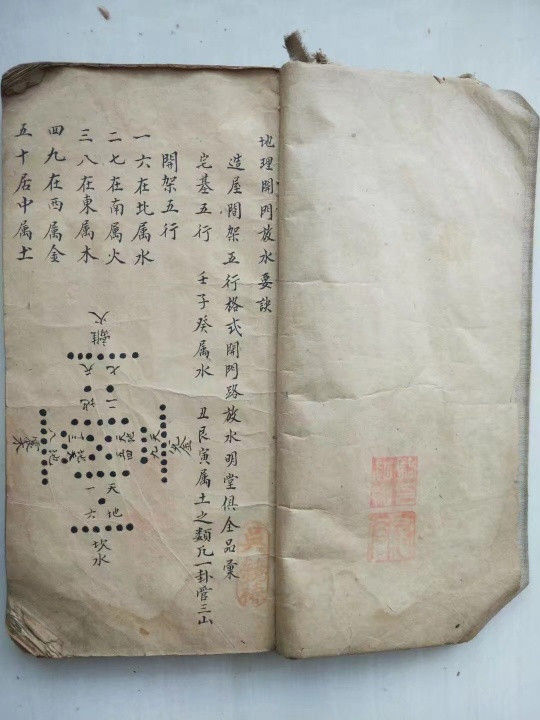 地理開門放水要訣
造屋間架五行格式開門路放水明堂俱全品彙
宅基五行 壬子癸属水 丑艮寅属土之類凡一卦管三山
間架五行
一六在北属水
二七在南属火
三八在東属木
四九在西属金
五十居中属土
離火
七
二
地
天
九
八
三
五
四
天
一
地
六
坎水